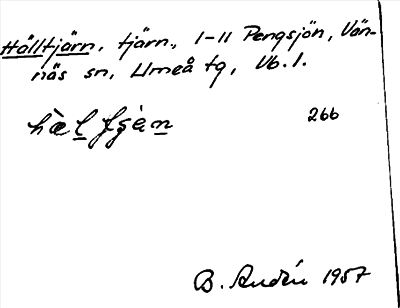 Hälltjärn, tjärn., 1-11 Pengsjön, Vän-
näs sn, Umeå tg, Vb. l.
266
B. Andrén 1957